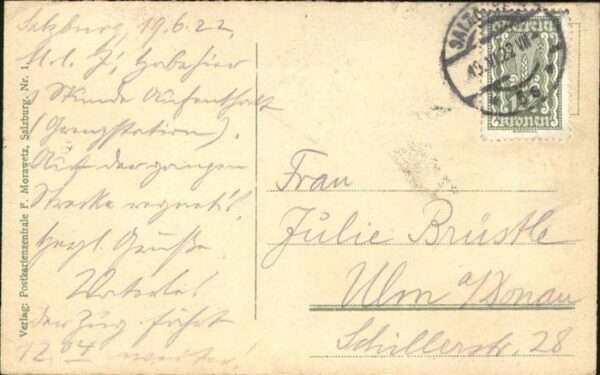 Salzburg, 19.6.22.
M. l. J! Habe hier
1 Stunde Aufenthalt
(Grenzstation).
Auf der ganzen
Strecke regnet's.
Herzl. Grüße
Vaterle!
der Zug fährt
12 04 weiter!
Verlag: Postkartenzentrale F. Morawetz, Salzburg. Nr. 1.
SALZBURG
19.VI.22
Kronen
Frau
Julie Brüstle
Ulm a/Donau
Schillerstr. 28